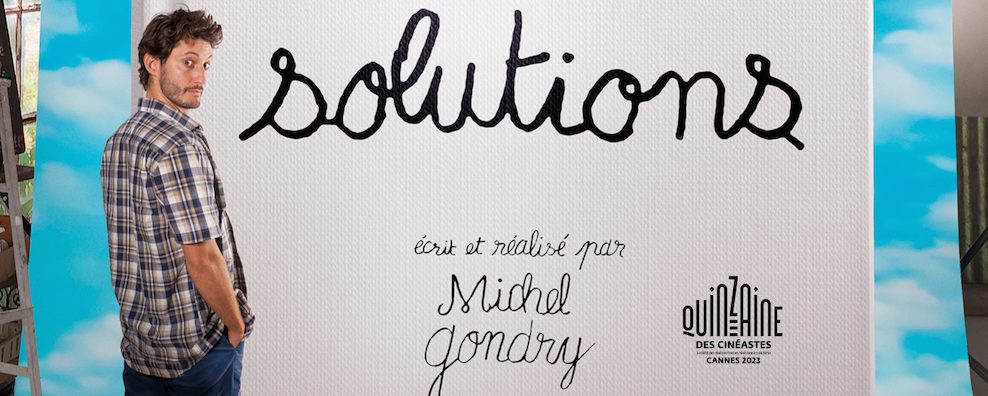 solutions
écrit et réalisé par
Michel
gondry
QUINZAINE
DES CINÉASTES
CANNES 2023